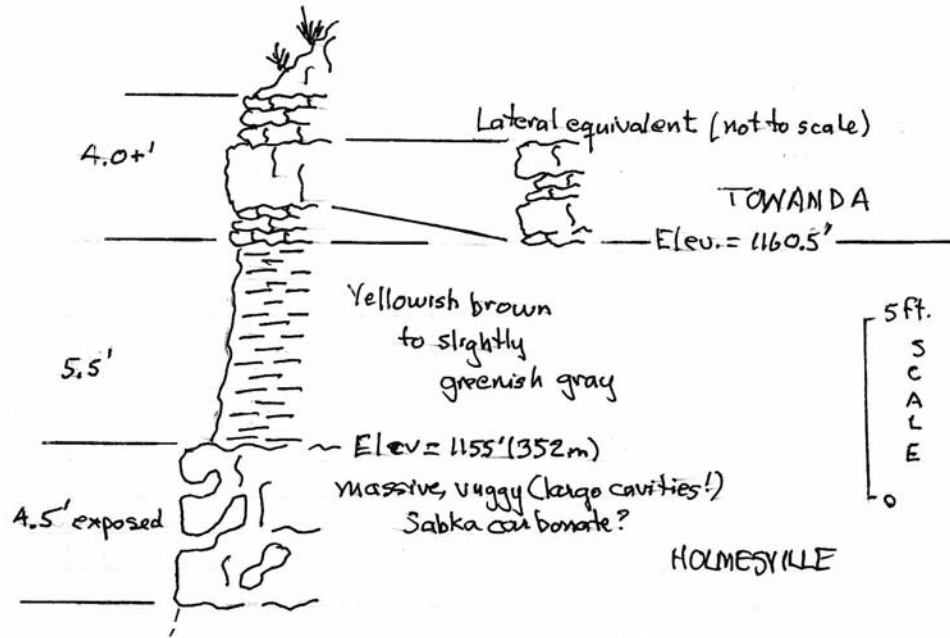 Lateral equivalent (not to scale)
4.0+'
TOWANDA
Elev. = 1160.5'
Yellowish brown
to slightly
greenish gray
5 ft.
SCALE
0
5.5'
Elev = 1155' (352m)
massive, vuggy (large cavities!)
Sabka carbonate?
4.5' exposed
HOLMESVILLE